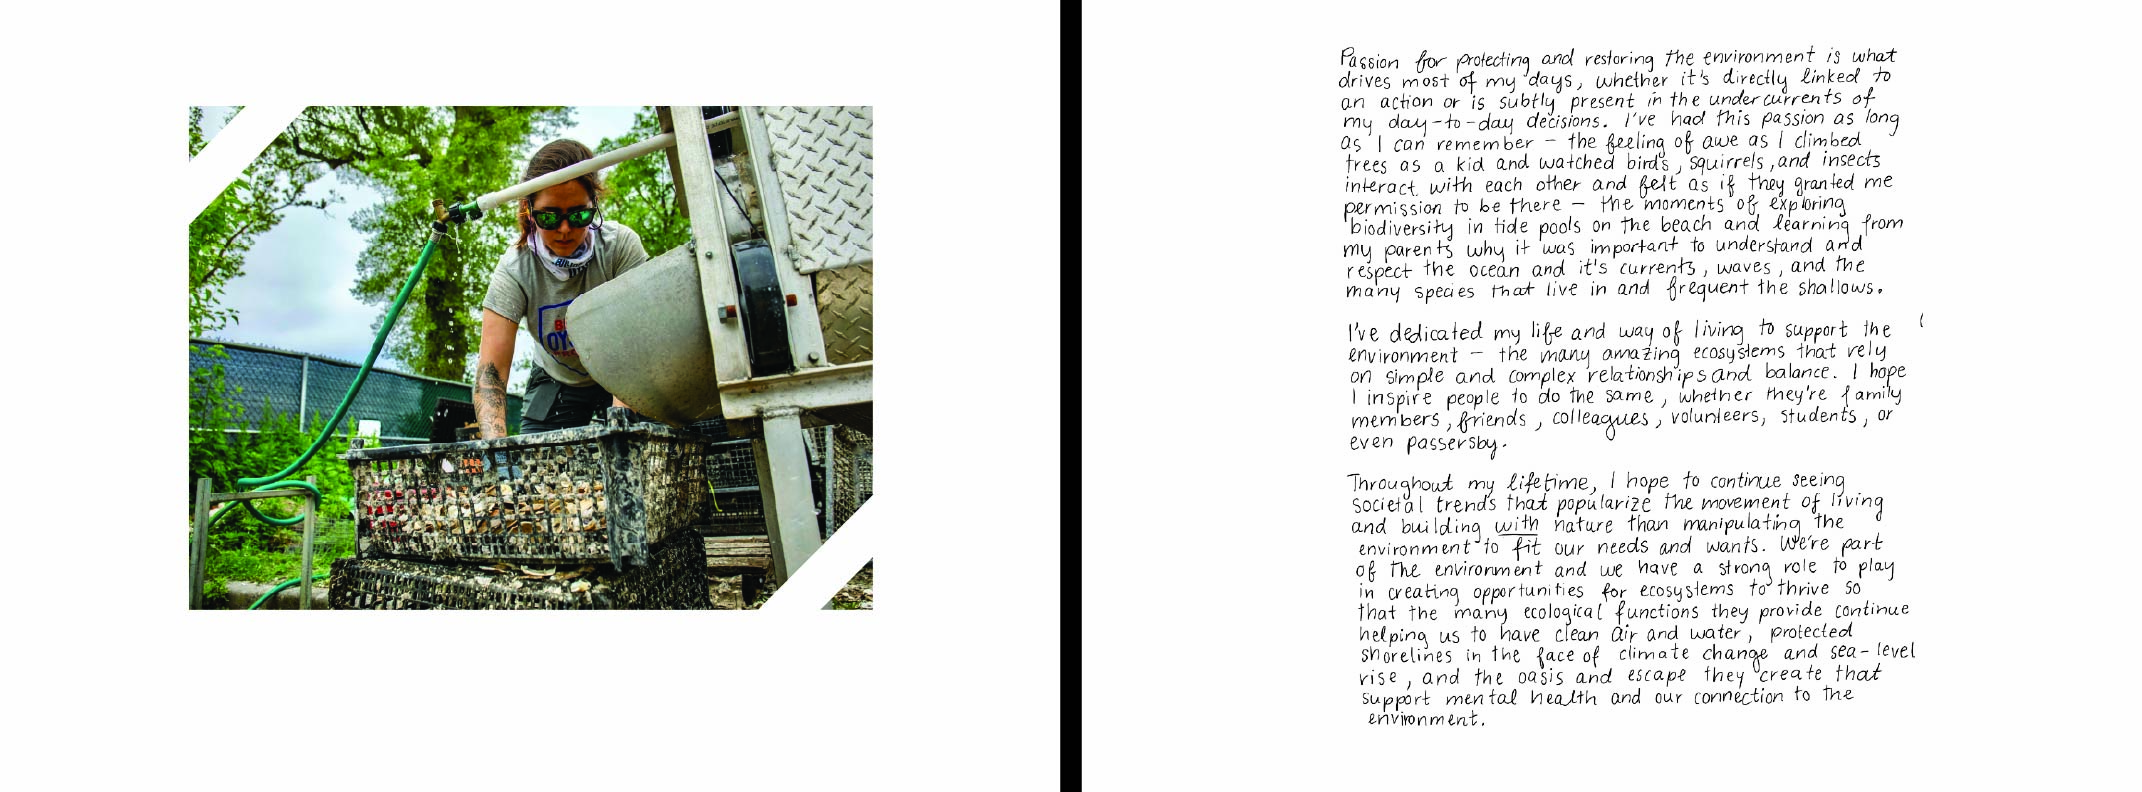 Passion for protecting and restoring the environment is what
drives most of my days, whether it's directly linked to
an action or is subtly present in the undercurrents of
my day-to-day decisions. I've had this passion as long
as I can remember – the feeling of awe as I climbed
trees as a kid and watched birds, squirrels, and insects
interact with each other and felt as if they granted me
permission to be there – the moments of exploring
biodiversity in tide pools on the beach and learning from
my parents why it was important to understand and
respect the ocean and it's currents, waves, and the
many species that live in and frequent the shallows.
I've dedicated my life and way of living to support the
environment – the many amazing ecosystems that rely
on simple and complex relationships and balance. I hope
I inspire people to do the same, whether they're family
members, friends, colleagues, volunteers, students, or
even passersby.
Throughout my lifetime, I hope to continue seeing
societal trends that popularize the movement of living
and building with nature than manipulating the
environment to fit our needs and wants. We're part
of the environment and we have a strong role to play
in creating opportunities for ecosystems to thrive so
that the many ecological functions they provide continue
helping us to have clean air and water, protected
shorelines in the face of climate change and sea-level
rise, and the oasis and escape they create that
support mental health and our connection to the
environment.